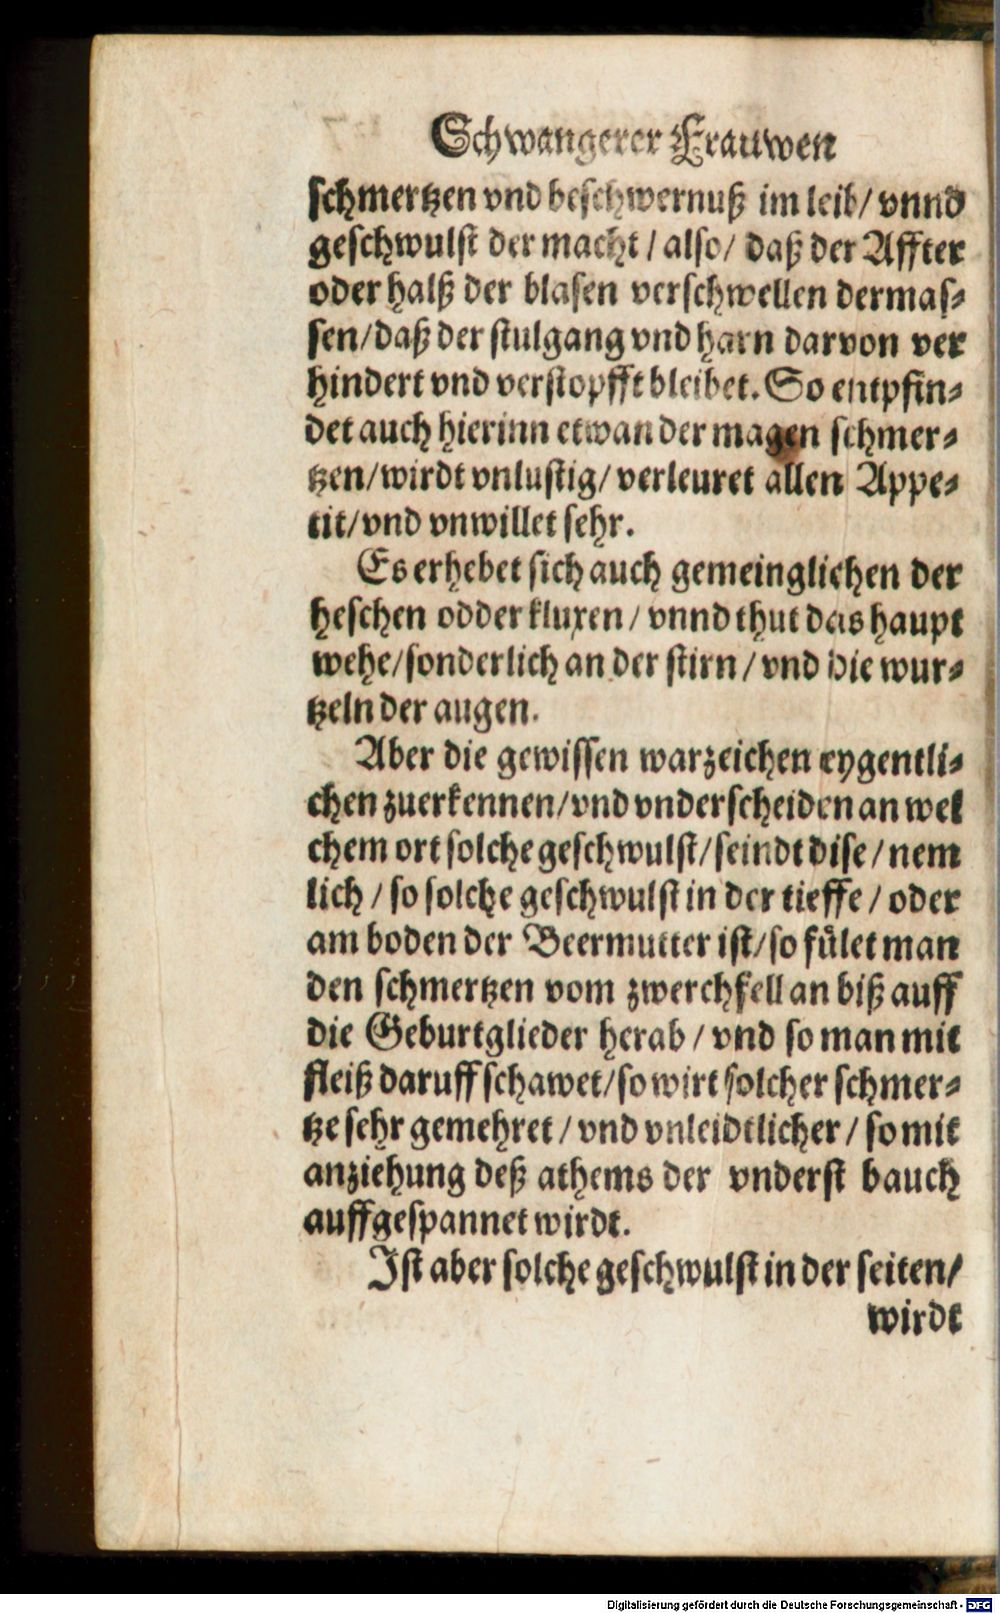 Schwangerer Frauwen
schmertzen vnd beschwernuß im leib/ vnnd
geschwulst der macht / also/ daß der Affter
oder halß der blasen verschwellen dermas⸗
sen/daß der stulgang vnd harn darvon ver
hindert vnd verstopfft bleibet. So entpfin⸗
det auch hierinn etwan der magen schmer⸗
tzen/wirdt vnlustig/ verleuret allen Appe⸗
tit/vnd vnwillet sehr.
Es erhebet sich auch gemeinglichen der
heschen odder kluxen / vnnd thut das haupt
wehe/sonderlich an der stirn / vnd die wur⸗
tzeln der augen.
Aber die gewissen warzeichen eygentli⸗
chen zuerkennen/vnd vnderscheiden an wel
chem ort solche geschwulst/seindt dise / nem
lich / so solche geschwulst in der tieffe / oder
am boden der Beermutter ist/so fület man
den schmertzen vom zwerchfell an biß auff
die Geburtglieder herab / vnd so man mit
fleiß daruff schawet/so wirt solcher schmer⸗
tze sehr gemehret / vnd vnleidtlicher / so mit
anziehung deß athems der vnderst bauch
auffgespannet wirdt.
Ist aber solche geschwulst in der seiten/
wirdt
Digitalisierung gefördert durch die Deutsche Forschungsgemeinschaft - DFG